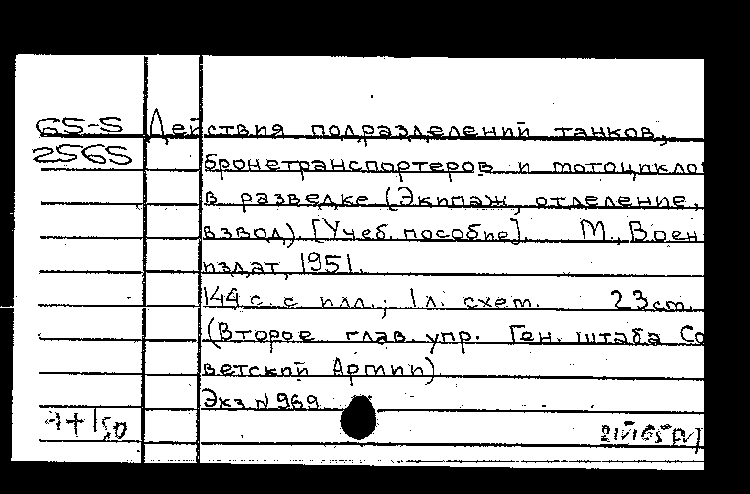 65-5 Действия подразделений танков,
2565 бронетранспортеров и мотоцикло
в разведке (Экипаж, отделение,
взвод). [Учеб. пособие]. М., Воен
издат, 1951.
144 с. с илл.; 1 л. схем. 23 cm.
(Второе глав. упр. Ген. штаба Со
ветской Армии)
Экз N 969